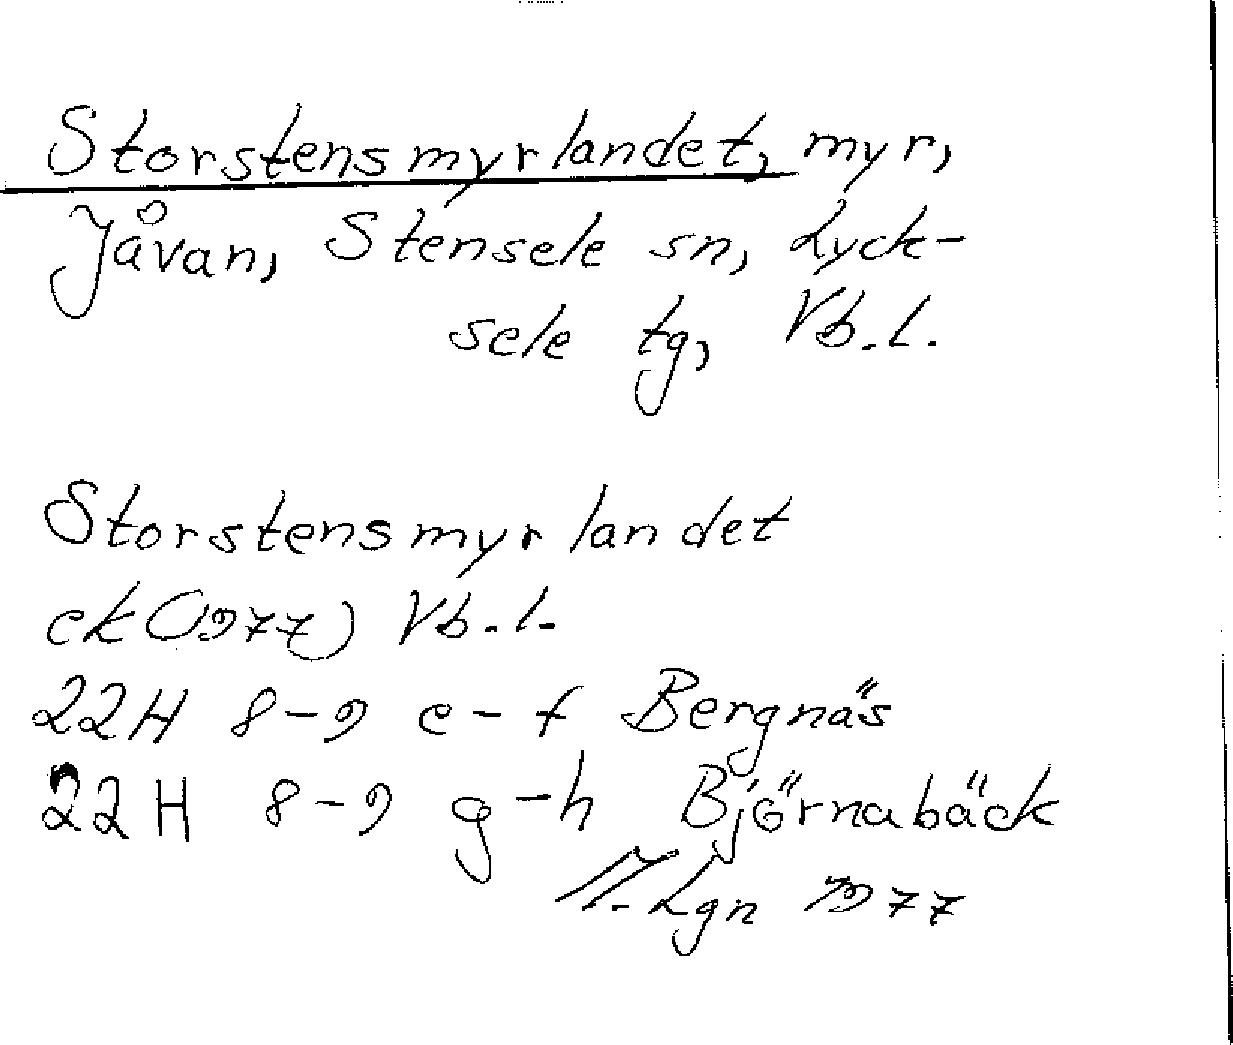 Storstensmyrlandet, myr,
Jåvan, Stensele sn, Lyck-
sele tg, Vb.l.
Storstensmyrlandet
ek (1977) Vb.l.
22H 8-9 e-f Bergnäs
22H 8-9 g-h Björnabäck
Lgn 1977